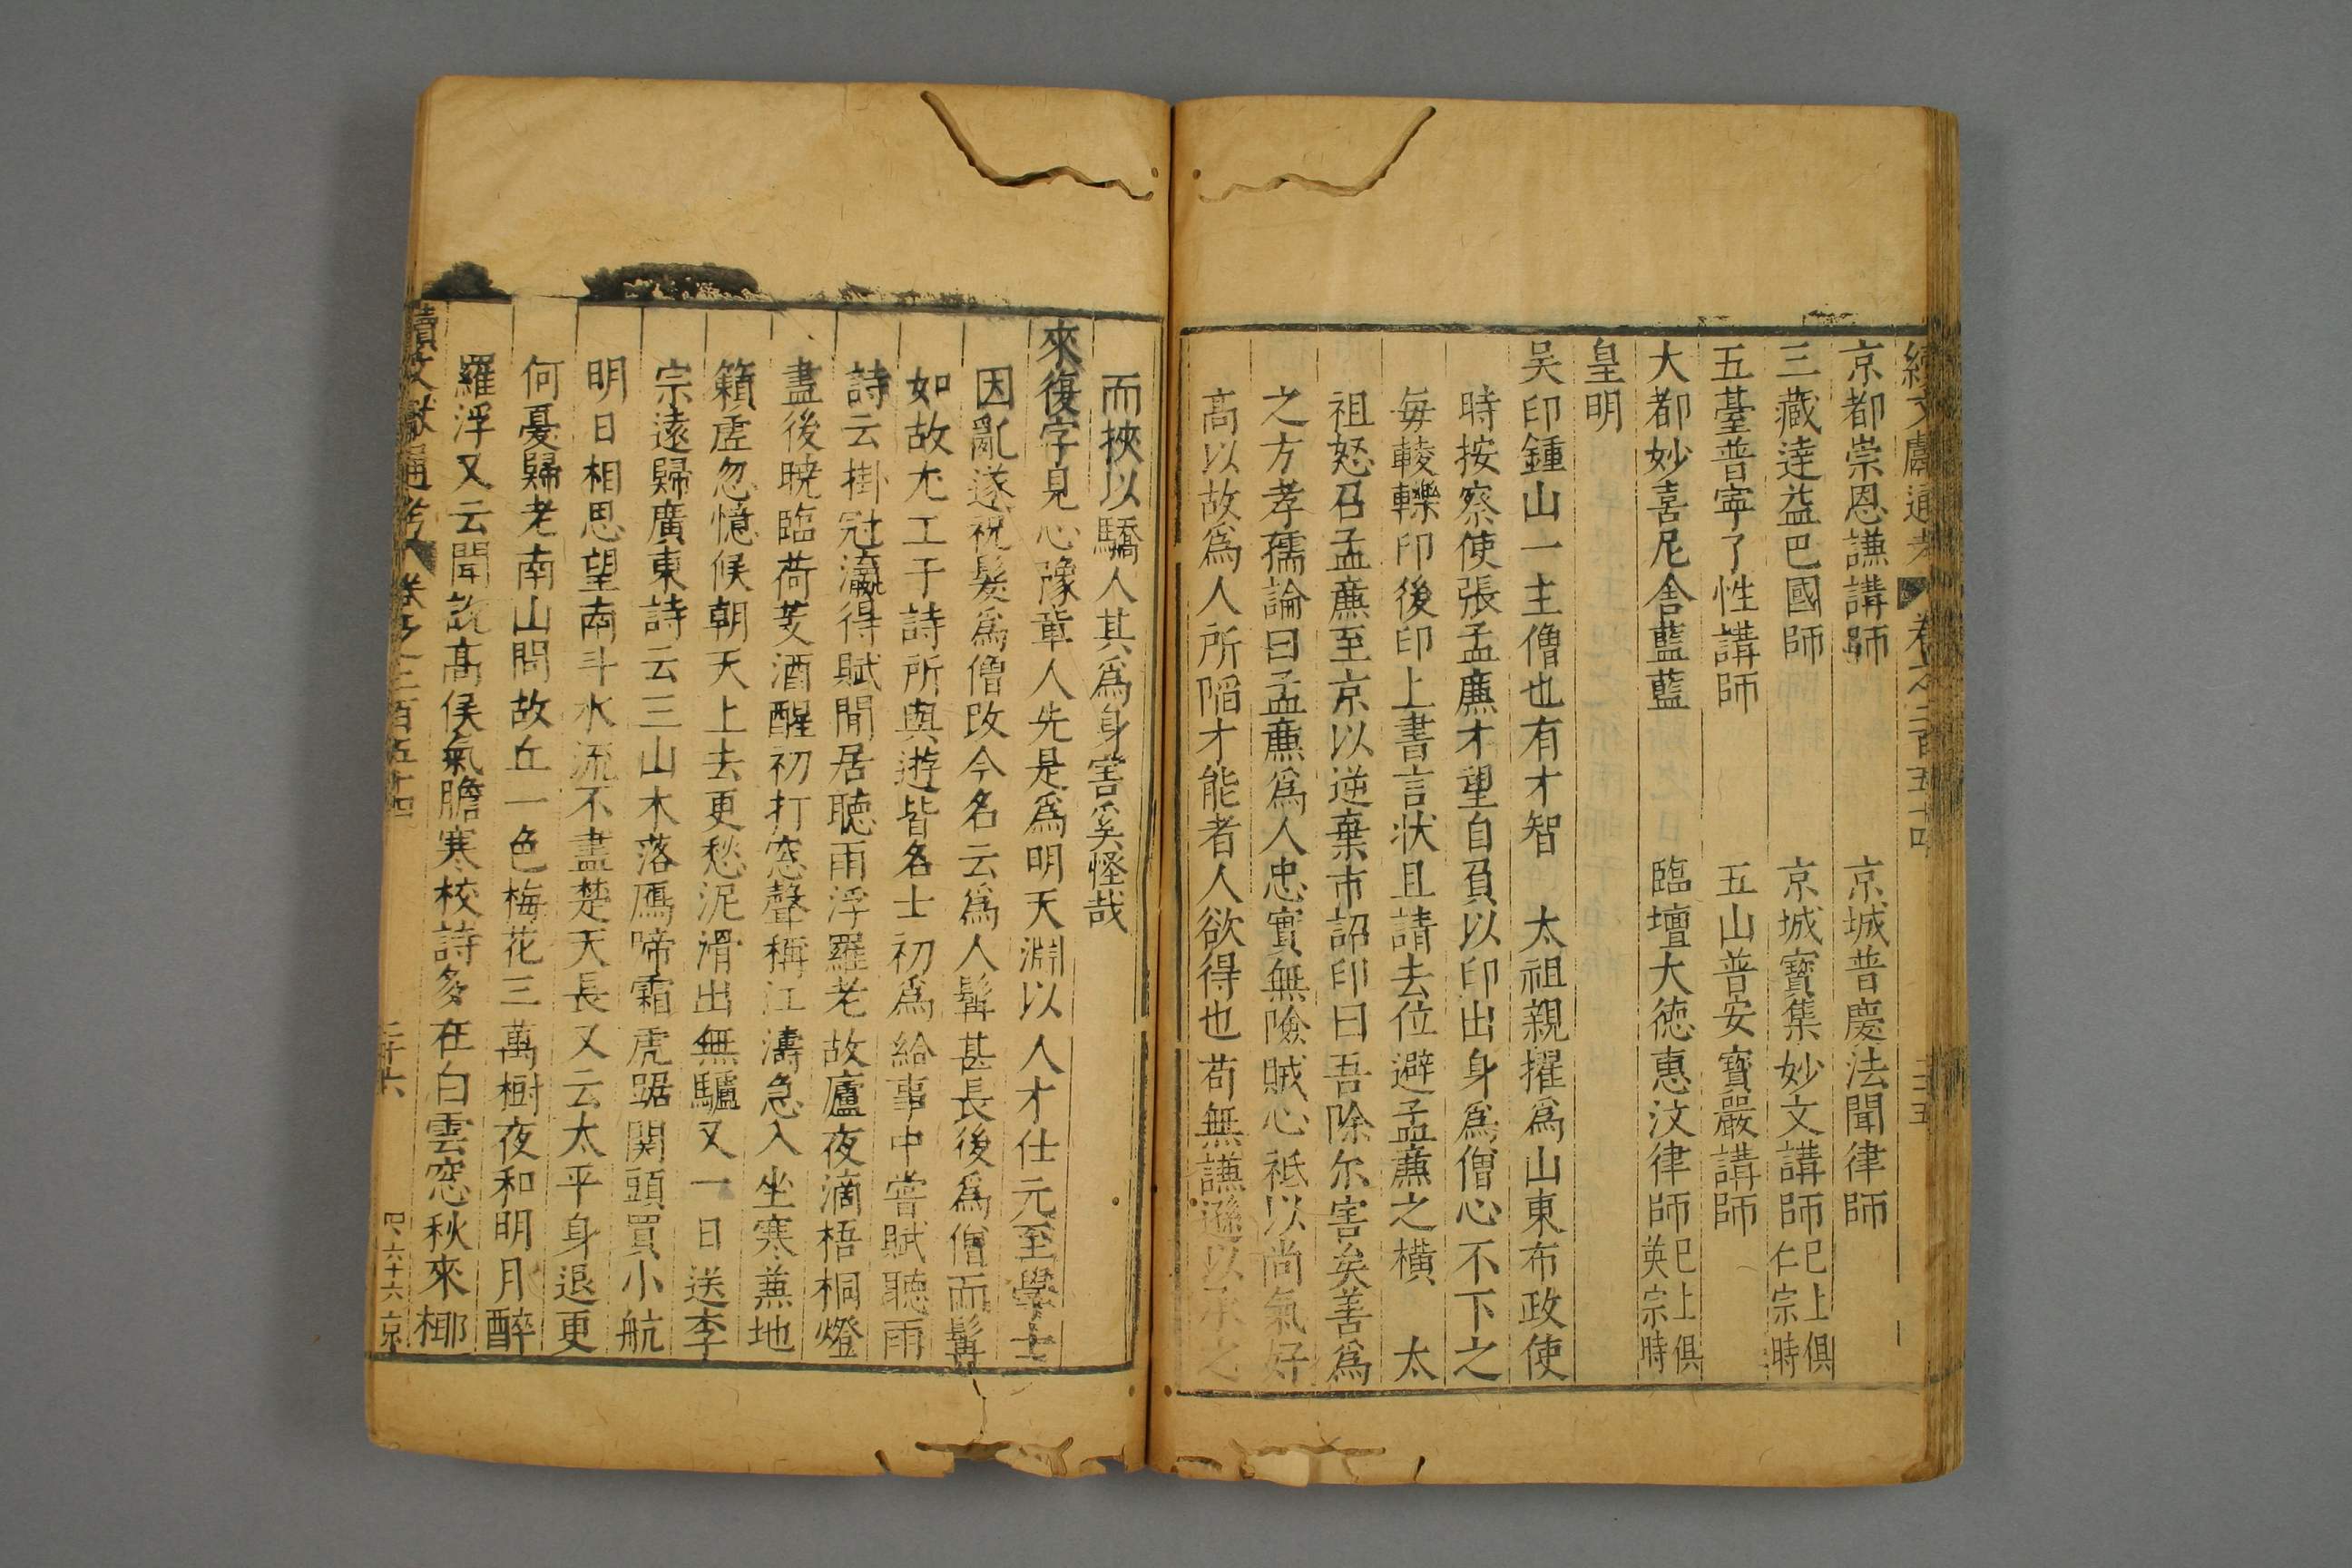 續文獻通考 卷之二百五十四 三十五
京都崇恩謙講師 京城普慶法聞律師
三藏達益巴國師 京城寶集妙文講師 已上俱仁宗時
五臺普寧了性講師 五山普安寶嚴講師
大都妙喜尼舍藍藍 臨壇大德惠汶律師 已上俱英宗時
皇明
吴印鍾山一主僧也有才智 太祖親擢爲山東布政使
時按察使張孟廉才望自負以印出身爲僧心不下之
每輘轢印後印上書言状且請去位避孟廉之横 太
祖怒召孟廉至京以逆棄市詔印曰吾除尔害矣善爲
之方孝孺論曰孟廉爲人忠實無險賊心祗以尚氣好
高以故爲人所陷才能者人欲得也苟無謙遜以承之
而挾以驕人其爲身害奚怪哉
來復字見心豫章人先是爲明天淵以人才仕元至學士
因亂遂祝髮爲僧改今名云爲人髯甚長後爲僧而髯
如故尤工于詩所與遊皆名士初爲給事中嘗賦聽雨
詩云掛冠瀛得賦閒居聽雨浮羅老故廬夜滴梧桐燈
盡後曉臨荷芰酒醒初打窓聲稱江濤急入坐寒兼地
籟虗忽憶候朝天上去更愁泥滑出無驢又一日送李
宗遠歸廣東詩云三山木落鴈啼霜虎踞関頭買小航
明日相思望南斗水流不盡楚天長又云太平身退更
何憂歸老南山問故丘一色梅花三萬樹夜和明月醉
羅浮又云聞說高侯氣膽寒校詩多在白雲窓秋來椰
續文獻通考 卷之二百五十四 三十六 四六十六 京